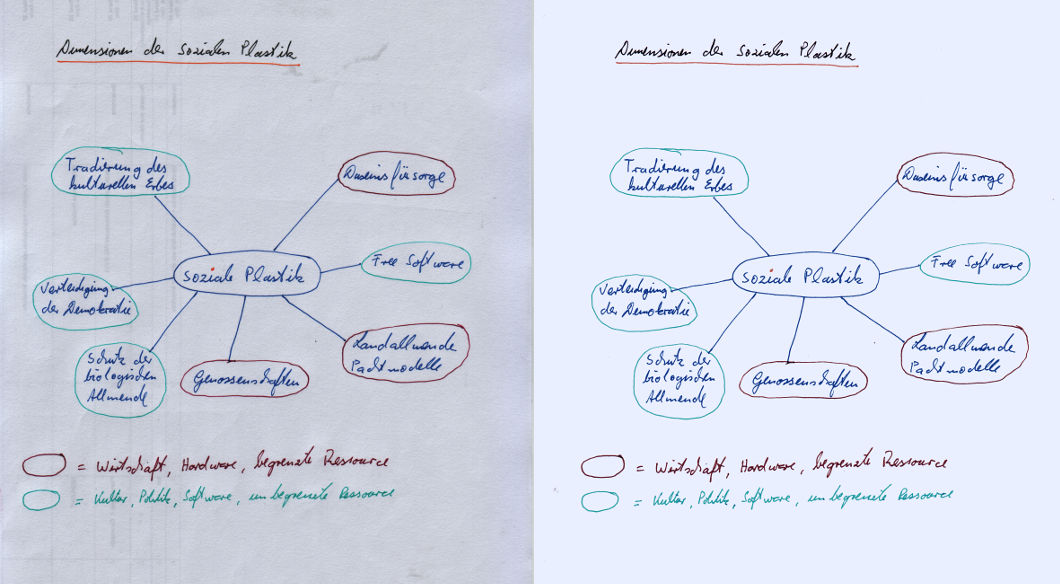 Dimensionen der sozialen Plastik
Tradierung des
kulturellen Erbes
Daseinsfürsorge
Free Software
Soziale Plastik
Verteidigung
der Demokratie
Schutz der
biologischen
Allmende
Genossenschaften
Landallmende
Pachtmodelle
= Wirtschaft, Hardware, begrenzte Ressource
= Kultur, Politik, Software, unbegrenzte Ressource
Dimensionen der sozialen Plastik
Tradierung des
kulturellen Erbes
Daseinsfürsorge
Free Software
Soziale Plastik
Verteidigung
der Demokratie
Schutz der
biologischen
Allmende
Genossenschaften
Landallmende
Pachtmodelle
= Wirtschaft, Hardware, begrenzte Ressource
= Kultur, Politik, Software, unbegrenzte Ressource